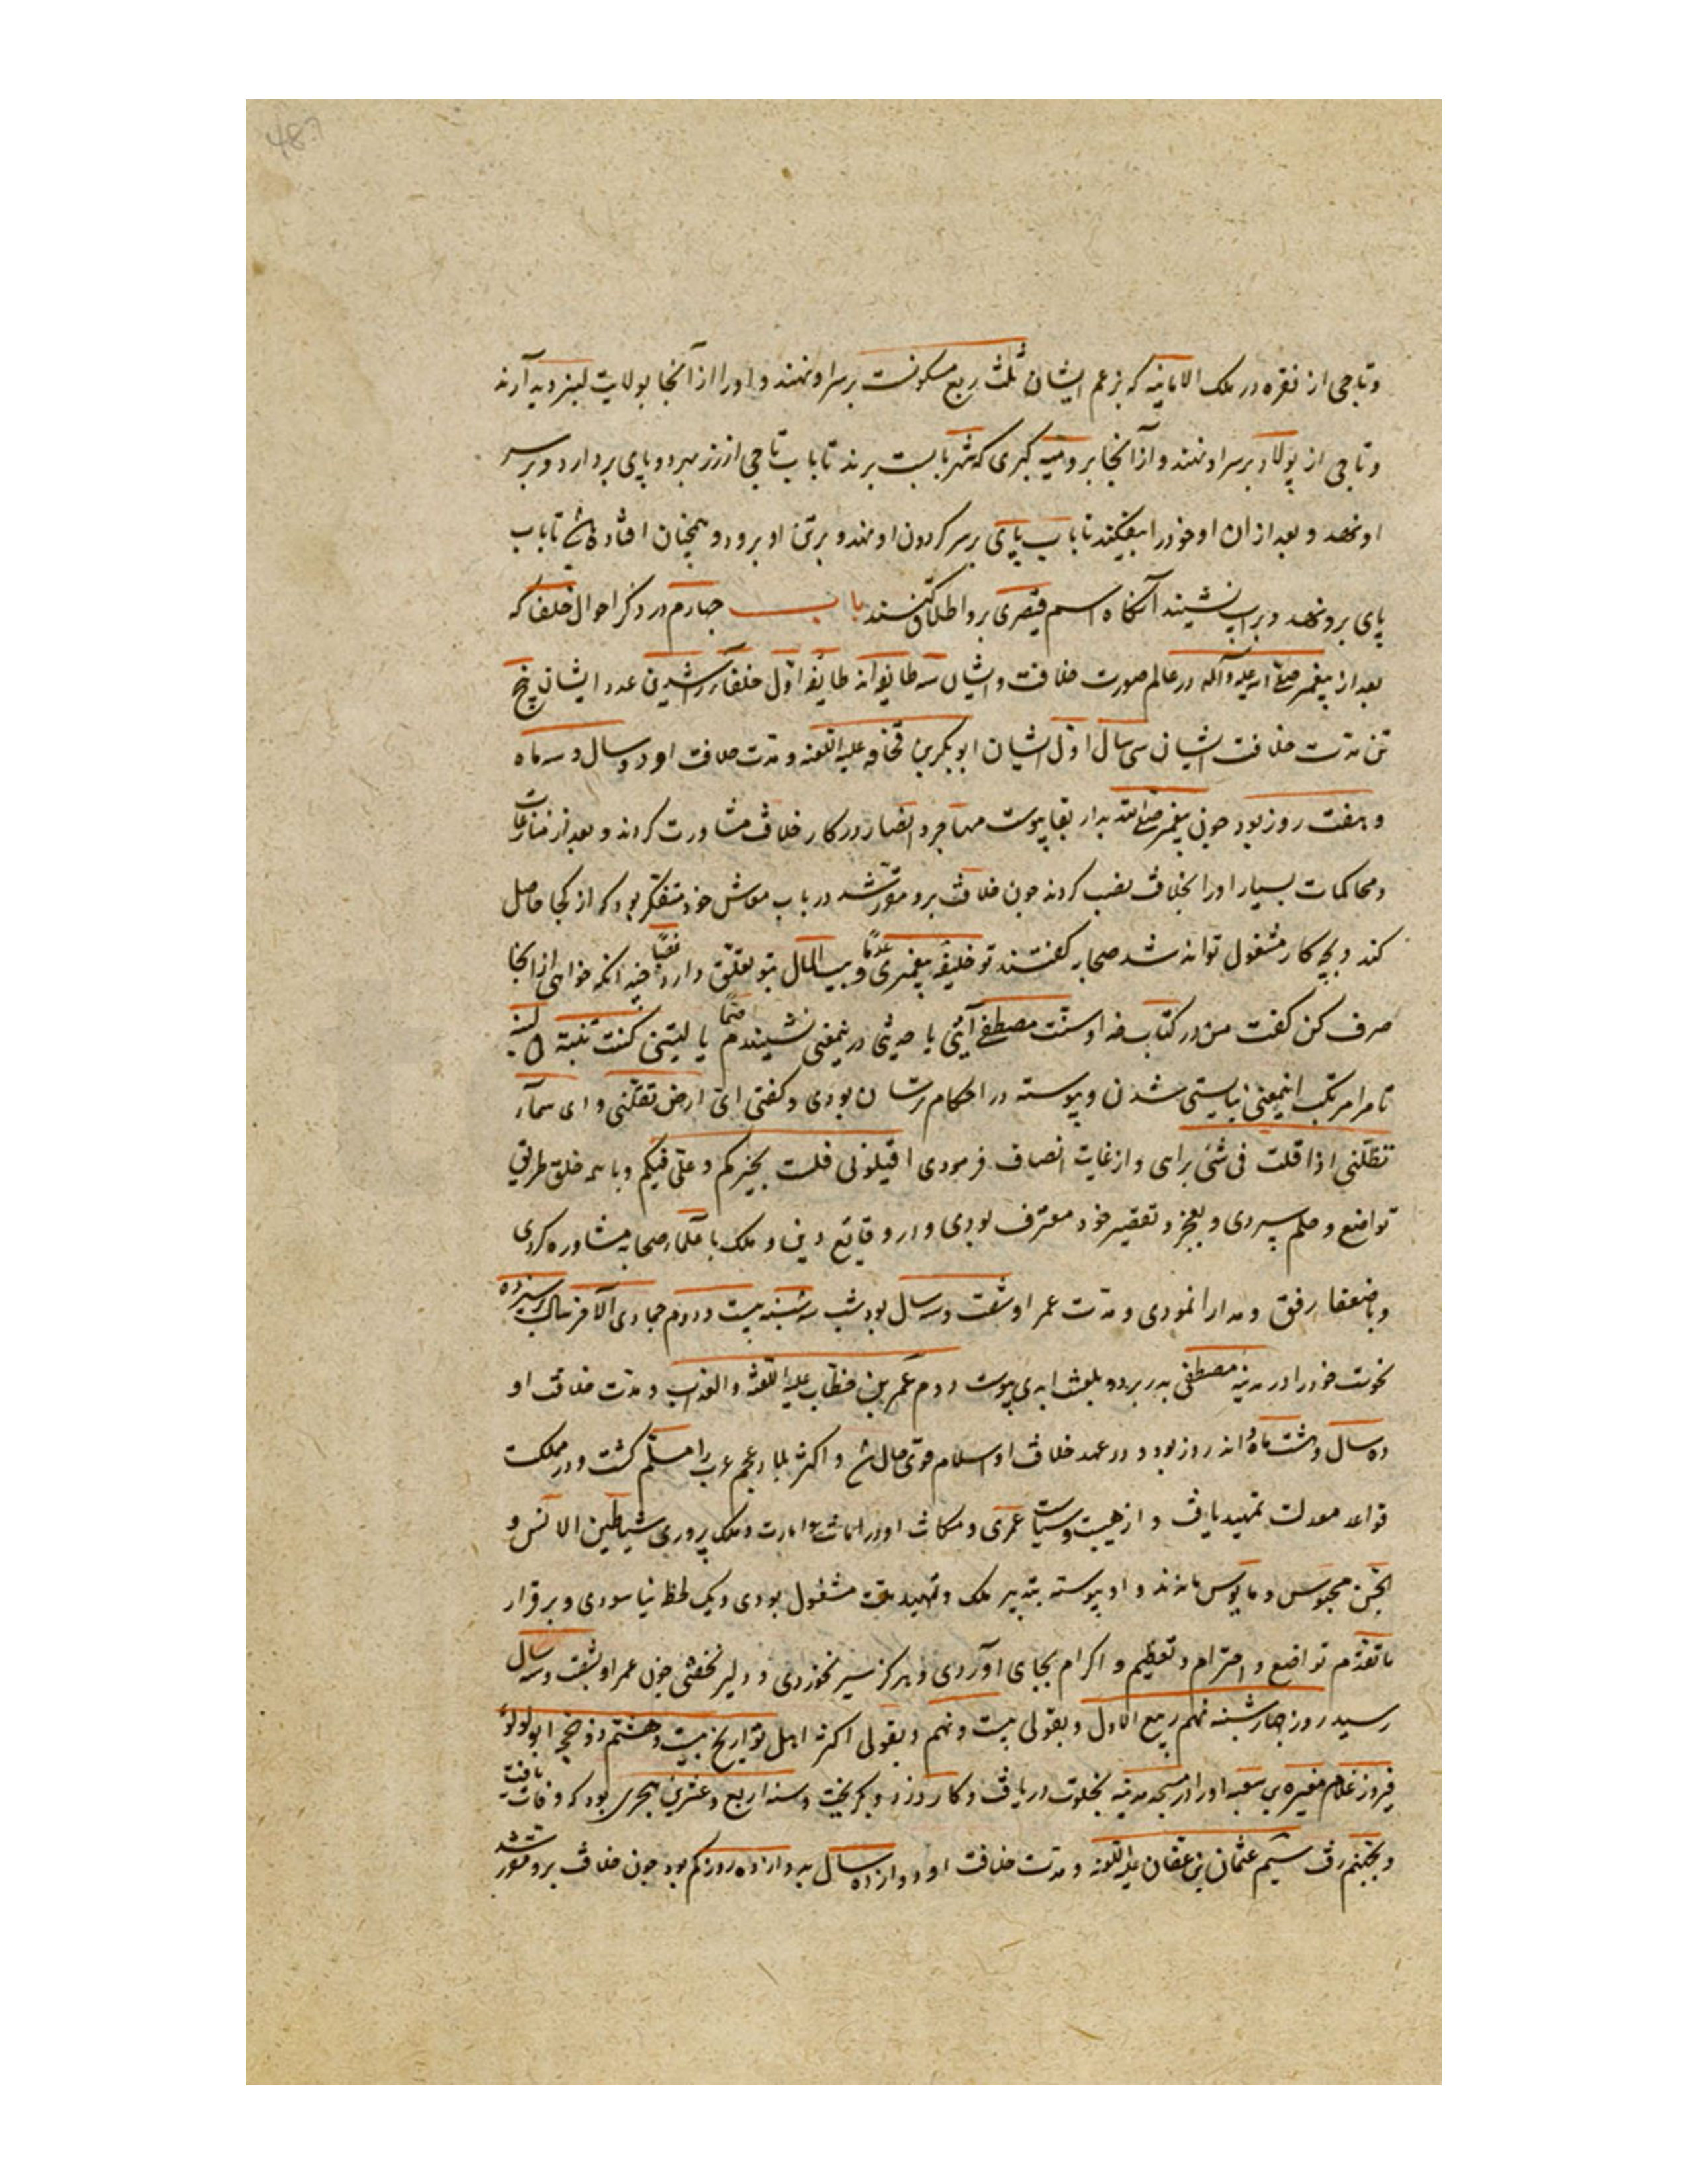 وتاجی از نقره در ملک الامانیه که بزعم ایشان ثلث ربع مسکونست برسر او نهند و اورا از آنجا بولایت لنبردیه آرند
و تاجی از پولاد برسر او نهند و از آنجا برومیه کبری که شهر بابست برند تا باب تاجی از زر بهر دو پای بردارد و برسر
او نهد و بعد از ان او خود را بیفکند تا باب پای برسر گردون او نهد و برتن او برود و همچنان افتاده باشد تا باب
پای برو نهد و براسپ نشیند آنگاه اسم قیصری برو اطلاق کنند باب چهارم در ذکر احوال خلفا که
بعد از پیغمبر صلی الله علیه و آله در عالم صورت خلافت و ایشان سه طایفه اند طایفه اول خلفاء راشدین عدد ایشان پنج
تن مدت خلافت ایشان سی سال اول ایشان ابوبکر بن قحافه علیه اللعنه و مدت خلافت او دو سال و سه ماه
و هفت روز بود چون پیغمبر صلی الله بدار بقا پیوست مهاجر و انصار در کار خلافت مشاورت کردند و بعد از منازعات
و محاکمات بسیار اورا بخلافت نصب کردند چون خلافت برو مقرر شد در باب معاش خود متفکر بود که از کجا حاصل
کند و بچه کار مشغول تواند شد صحابه گفتند تو خلیفه پیغمبری و بیت المال بتو تعلق دارد چنانکه خواهی از انجا
صرف کن گفت من در کتاب خدا و سنت مصطفی آیتی یا حدیثی درینمعنی نشنیدم یا لیتنی کنت تبنة لبنة
تا مرا مرتکب اینمعنی نبایستی شدن و پیوسته در احکام ترسان بودی و گفتی ای ارض تقلنی و ای سماء
تظلنی اذا قلت فی شئ برای و از غایت انصاف فرمودی اقیلونی فلست بخیرکم و علی فیکم و با همه خلق طریق
تواضع و حلم سپردی و بعجز و تقصیر خود معترف بودی و در وقایع دین و ملک با علماء صحابه مشاوره کردی
و با ضعفا رفق و مدارا نمودی و مدت عمر او شصت و سه سال بود شب سه شنبه بیست و دوم جمادی الاخر سال سیزده
نحوست خود را در مدینه مصطفی بدر برد و بلعنت ابدی پیوست دوم عمر بن خطاب علیه اللعنة والعذاب و مدت خلافت او
ده سال و هشت ماه و اند روز بود و در عهد خلافت او اسلام قوی حال شد و اکثر بلاد عجم عرب را مسلم گشت و در مملکت
قواعد معدلت تمهید یافت و از هیبت و سیاست عمری و مکانت او در امانت و امارت و ملک پروری شیاطین الانس و
الجن محبوس و مایوس ماندند و او پیوسته بتدبیر ملک و تمهید ملت مشغول بودی و یک لحظه نیاسودی و برقرار
ماتقدم تواضع و احترام و تعظیم و اکرام بجای آوردی و هرگز سیر نخوردی و دلیر نخفتی چون عمر او بشصت و سه سال
رسید روز چهارشنبه نهم ربیع الاول و بقولی بیست و نهم و بقولی اکثر اهل تواریخ بیست و هشتم ذو حجه ابو لولو
فیروز غلام مغیره بن شعبه اورا در مسجد مدینه بخلوت دریافت و کارد زد و بگریخت و سنه اربع و عشرین هجری بود که وفات یافت
و بجهنم رفت سیم عثمان بن عفان علیه اللعنه و مدت خلافت او دوازده سال بدوازده روز کم بود چون خلافت برو مقرر شد